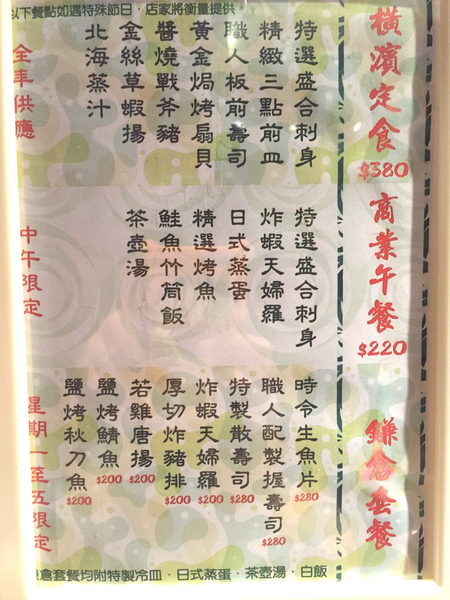 以下餐點如遇特殊節日，店家將衡量提供。
橫濱定食
$380
特選盛合刺身
精緻三點前皿
職人板前壽司
黃金焗烤扇貝
醬燒戰斧豬
金絲草蝦揚
北海蒸汁
全年供應
商業午餐
$220
特選盛合刺身
炸蝦天婦羅
日式蒸蛋
精選烤魚
鮭魚竹筒飯
茶壺湯
中午限定
鎌倉套餐
時令生魚片
$280
職人配製握壽司
$280
特製散壽司
$280
炸蝦天婦羅
$200
厚切炸豬排
$200
若雞唐揚
$200
鹽烤鯖魚
$200
鹽烤秋刀魚
$200
星期一至五限定
倉套餐均附特製冷皿、日式蒸蛋、茶壺湯、白飯